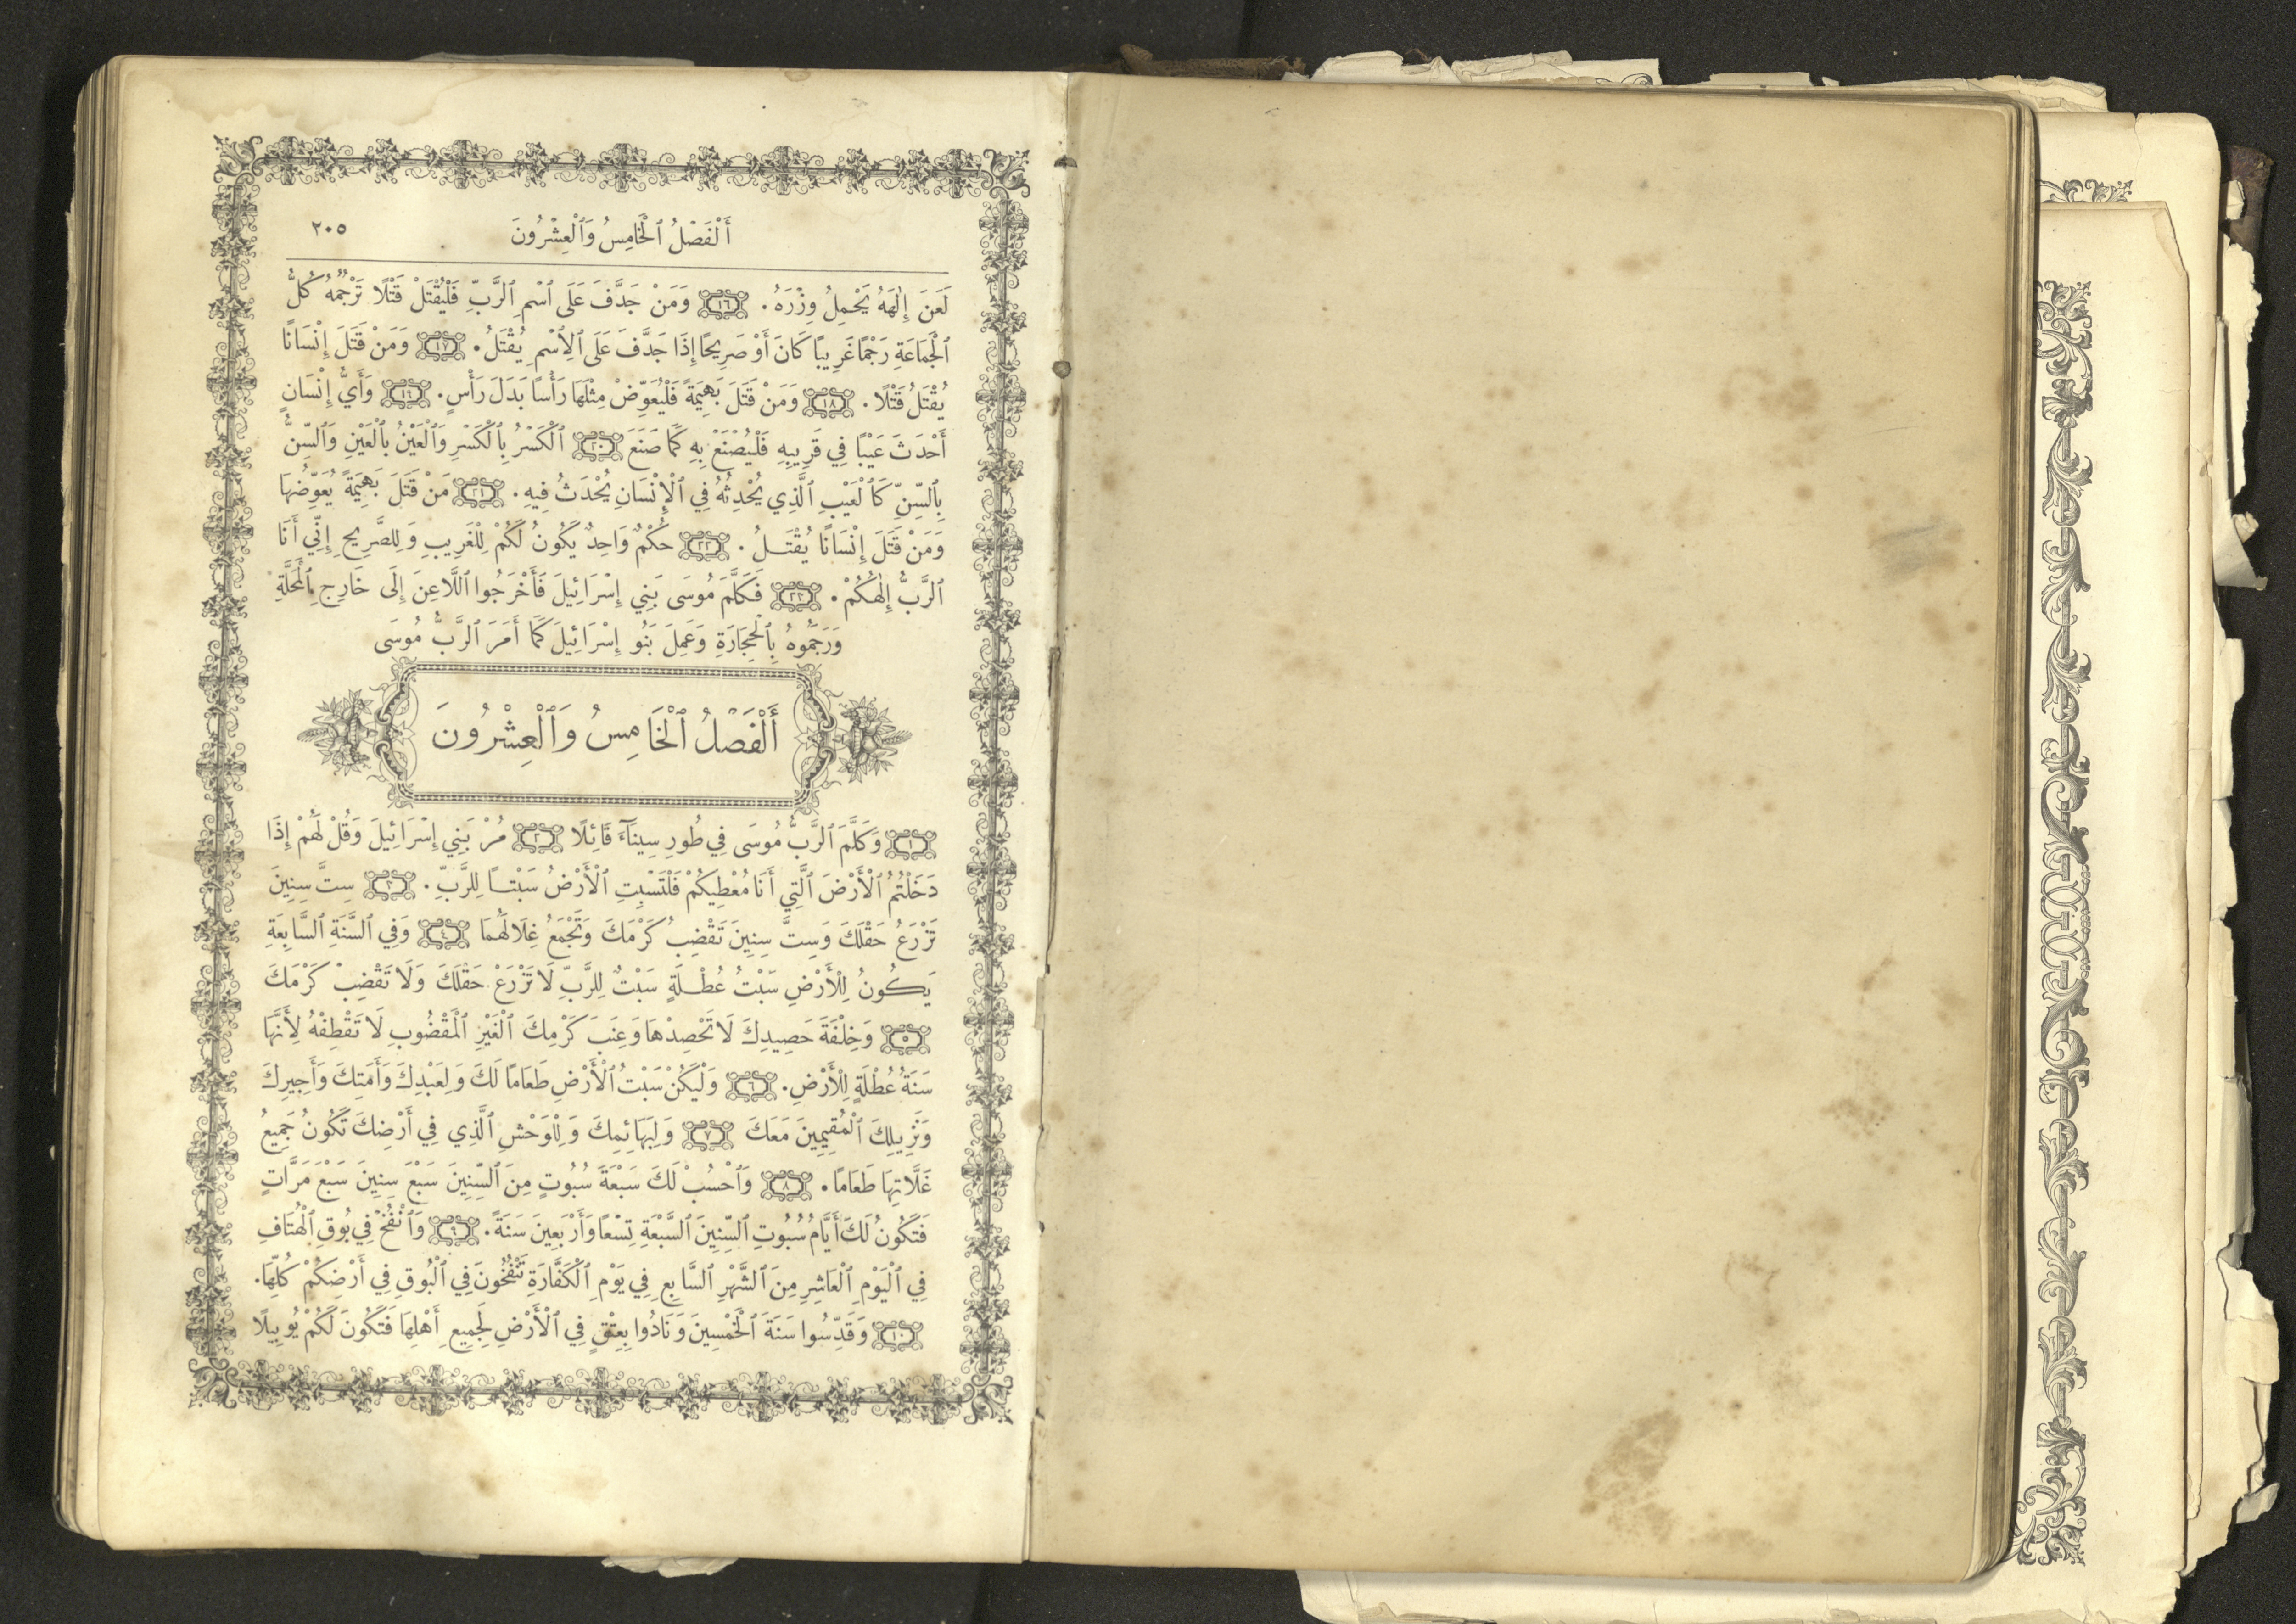 أَلْفَصْلُ ٱلْخَامِسُ وَٱلْعِشْرُونَ ٢٠٥
لَعَنَ إِلٰهَهُ يَحْمِلُ وِزْرَهُ. ١٦ وَمَنْ جَدَّفَ عَلَى ٱسْمِ ٱلرَّبِّ فَلْيُقْتَلْ قَتْلًا تَرْجُمُهُ كُلُّ
ٱلْجَمَاعَةِ رَجْمًا غَرِيبًا كَانَ أَوْ صَرِيحًا إِذَا جَدَّفَ عَلَى ٱلِٱسْمِ يُقْتَلُ. ١٧ وَمَنْ قَتَلَ إِنْسَانًا
يُقْتَلُ قَتْلًا. ١٨ وَمَنْ قَتَلَ بَهِيمَةً فَلْيُعَوِّضْ مِثْلَهَا رَأْسًا بَدَلَ رَأْسٍ. ١٩ وَأَيُّ إِنْسَانٍ
أَحْدَثَ عَيْبًا فِي قَرِيبِهِ فَلْيُصْنَعْ بِهِ كَمَا صَنَعَ ٢٠ ٱلْكَسْرُ بِٱلْكَسْرِ وَٱلْعَيْنُ بِٱلْعَيْنِ وَٱلسِّنُّ
بِٱلسِّنِّ كَٱلْعَيْبِ ٱلَّذِي يُحْدِثُهُ فِي ٱلْإِنْسَانِ يُحْدَثُ فِيهِ. ٢١ مَنْ قَتَلَ بَهِيمَةً يُعَوِّضُهَا
وَمَنْ قَتَلَ إِنْسَانًا يُقْتَلُ. ٢٢ حُكْمٌ وَاحِدٌ يَكُونُ لَكُمْ لِلْغَرِيبِ وَلِلصَّرِيحِ إِنِّي أَنَا
ٱلرَّبُّ إِلٰهُكُمْ. ٢٣ فَكَلَّمَ مُوسَى بَنِي إِسْرَائِيلَ فَأَخْرَجُوا ٱللَّاعِنَ إِلَى خَارِجِ ٱلْمَحَلَّةِ
وَرَجَمُوهُ بِٱلْحِجَارَةِ وَعَمِلَ بَنُو إِسْرَائِيلَ كَمَا أَمَرَ ٱلرَّبُّ مُوسَى
أَلْفَصْلُ ٱلْخَامِسُ وَٱلْعِشْرُونَ
١ وَكَلَّمَ ٱلرَّبُّ مُوسَى فِي طُورِ سِينَآءَ قَائِلًا ٢ مُرْ بَنِي إِسْرَائِيلَ وَقُلْ لَهُمْ إِذَا
دَخَلْتُمُ ٱلْأَرْضَ ٱلَّتِي أَنَا مُعْطِيكُمْ فَلْتَسْبِتِ ٱلْأَرْضُ سَبْتًا لِلرَّبِّ. ٣ سِتَّ سِنِينَ
تَزْرَعُ حَقْلَكَ وَسِتَّ سِنِينَ تَقْضِبُ كَرْمَكَ وَتَجْمَعُ غِلَالَهُمَا ٤ وَفِي ٱلسَّنَةِ ٱلسَّابِعَةِ
يَكُونُ لِلْأَرْضِ سَبْتُ عُطْلَةٍ سَبْتٌ لِلرَّبِّ لَا تَزْرَعْ حَقْلَكَ وَلَا تَقْضِبْ كَرْمَكَ
٥ وَخِلْفَةَ حَصِيدِكَ لَا تَحْصِدْهَا وَعِنَبَ كَرْمِكَ ٱلْغَيْرِ ٱلْمَقْضُوبِ لَا تَقْطِفْهُ لِأَنَّهَا
سَنَةُ عُطْلَةٍ لِلْأَرْضِ. ٦ وَلْيَكُنْ سَبْتُ ٱلْأَرْضِ طَعَامًا لَكَ وَلِعَبْدِكَ وَأَمَتِكَ وَأَجِيرِكَ
وَنَزِيلِكَ ٱلْمُقِيمِينَ مَعَكَ ٧ وَلِبَهَائِمِكَ وَلِلْوَحْشِ ٱلَّذِي فِي أَرْضِكَ تَكُونُ جَمِيعُ
غَلَّاتِهَا طَعَامًا. ٨ وَٱحْسُبْ لَكَ سَبْعَةَ سُبُوتٍ مِنَ ٱلسِّنِينَ سَبْعَ سِنِينَ سَبْعَ مَرَّاتٍ
فَتَكُونُ لَكَ أَيَّامُ سُبُوتِ ٱلسِّنِينَ ٱلسَّبْعَةِ تِسْعًا وَأَرْبَعِينَ سَنَةً. ٩ وَٱنْفُخْ فِي بُوقِ ٱلْهُتَافِ
فِي ٱلْيَوْمِ ٱلْعَاشِرِ مِنَ ٱلشَّهْرِ ٱلسَّابِعِ فِي يَوْمِ ٱلْكَفَّارَةِ تَنْفُخُونَ فِي ٱلْبُوقِ فِي أَرْضِكُمْ كُلِّهَا.
١٠ وَقَدِّسُوا سَنَةَ ٱلْخَمْسِينَ وَنَادُوا بِعِتْقٍ فِي ٱلْأَرْضِ لِجَمِيعِ أَهْلِهَا فَتَكُونَ لَكُمْ يُوبِيلًا